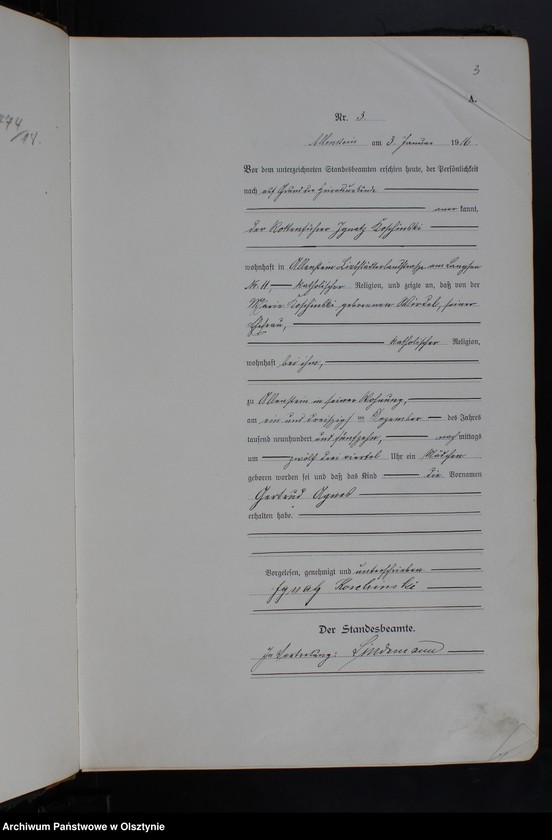 3
A.
Nr. 3.
Allenstein am 3. Januar 1916.
Vor dem unterzeichneten Standesbeamten erschien heute, der Persönlichkeit
nach auf Grund der
kannt,
der Rottenführer Ignatz Koschinski
wohnhaft in Allenstein, am Langsee
Nr. 11, katholischer Religion, und zeigte an, daß von der
Maria Koschinski geborenen seiner
Ehefrau,
katholischer Religion,
wohnhaft bei ihm,
zu Allenstein in seiner Wohnung,
am ein und dreißigsten Dezember des Jahres
tausend neunhundert und fünfzehn, nachmittags
um zwölf drei viertel Uhr ein Mädchen
geboren worden sei und daß das Kind die Vornamen
Gertrud Agnes
erhalten habe.
Vorgelesen, genehmigt und unterschrieben
Ignatz Koschinski
Der Standesbeamte.
In Vertretung: Lindemann
Archiwum Państwowe w Olsztynie